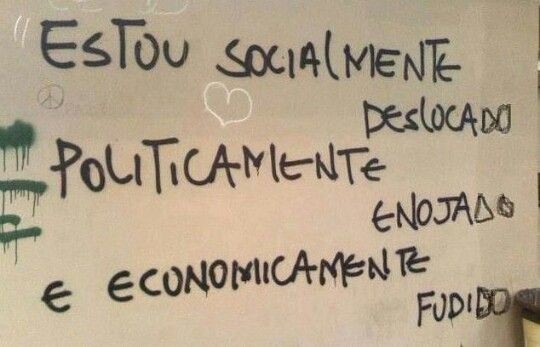 ESTOU SOCIALMENTE
DESLOCADO
POLITICAMENTE
ENOJADO
E ECONOMIICAMENTE
FUDIDO